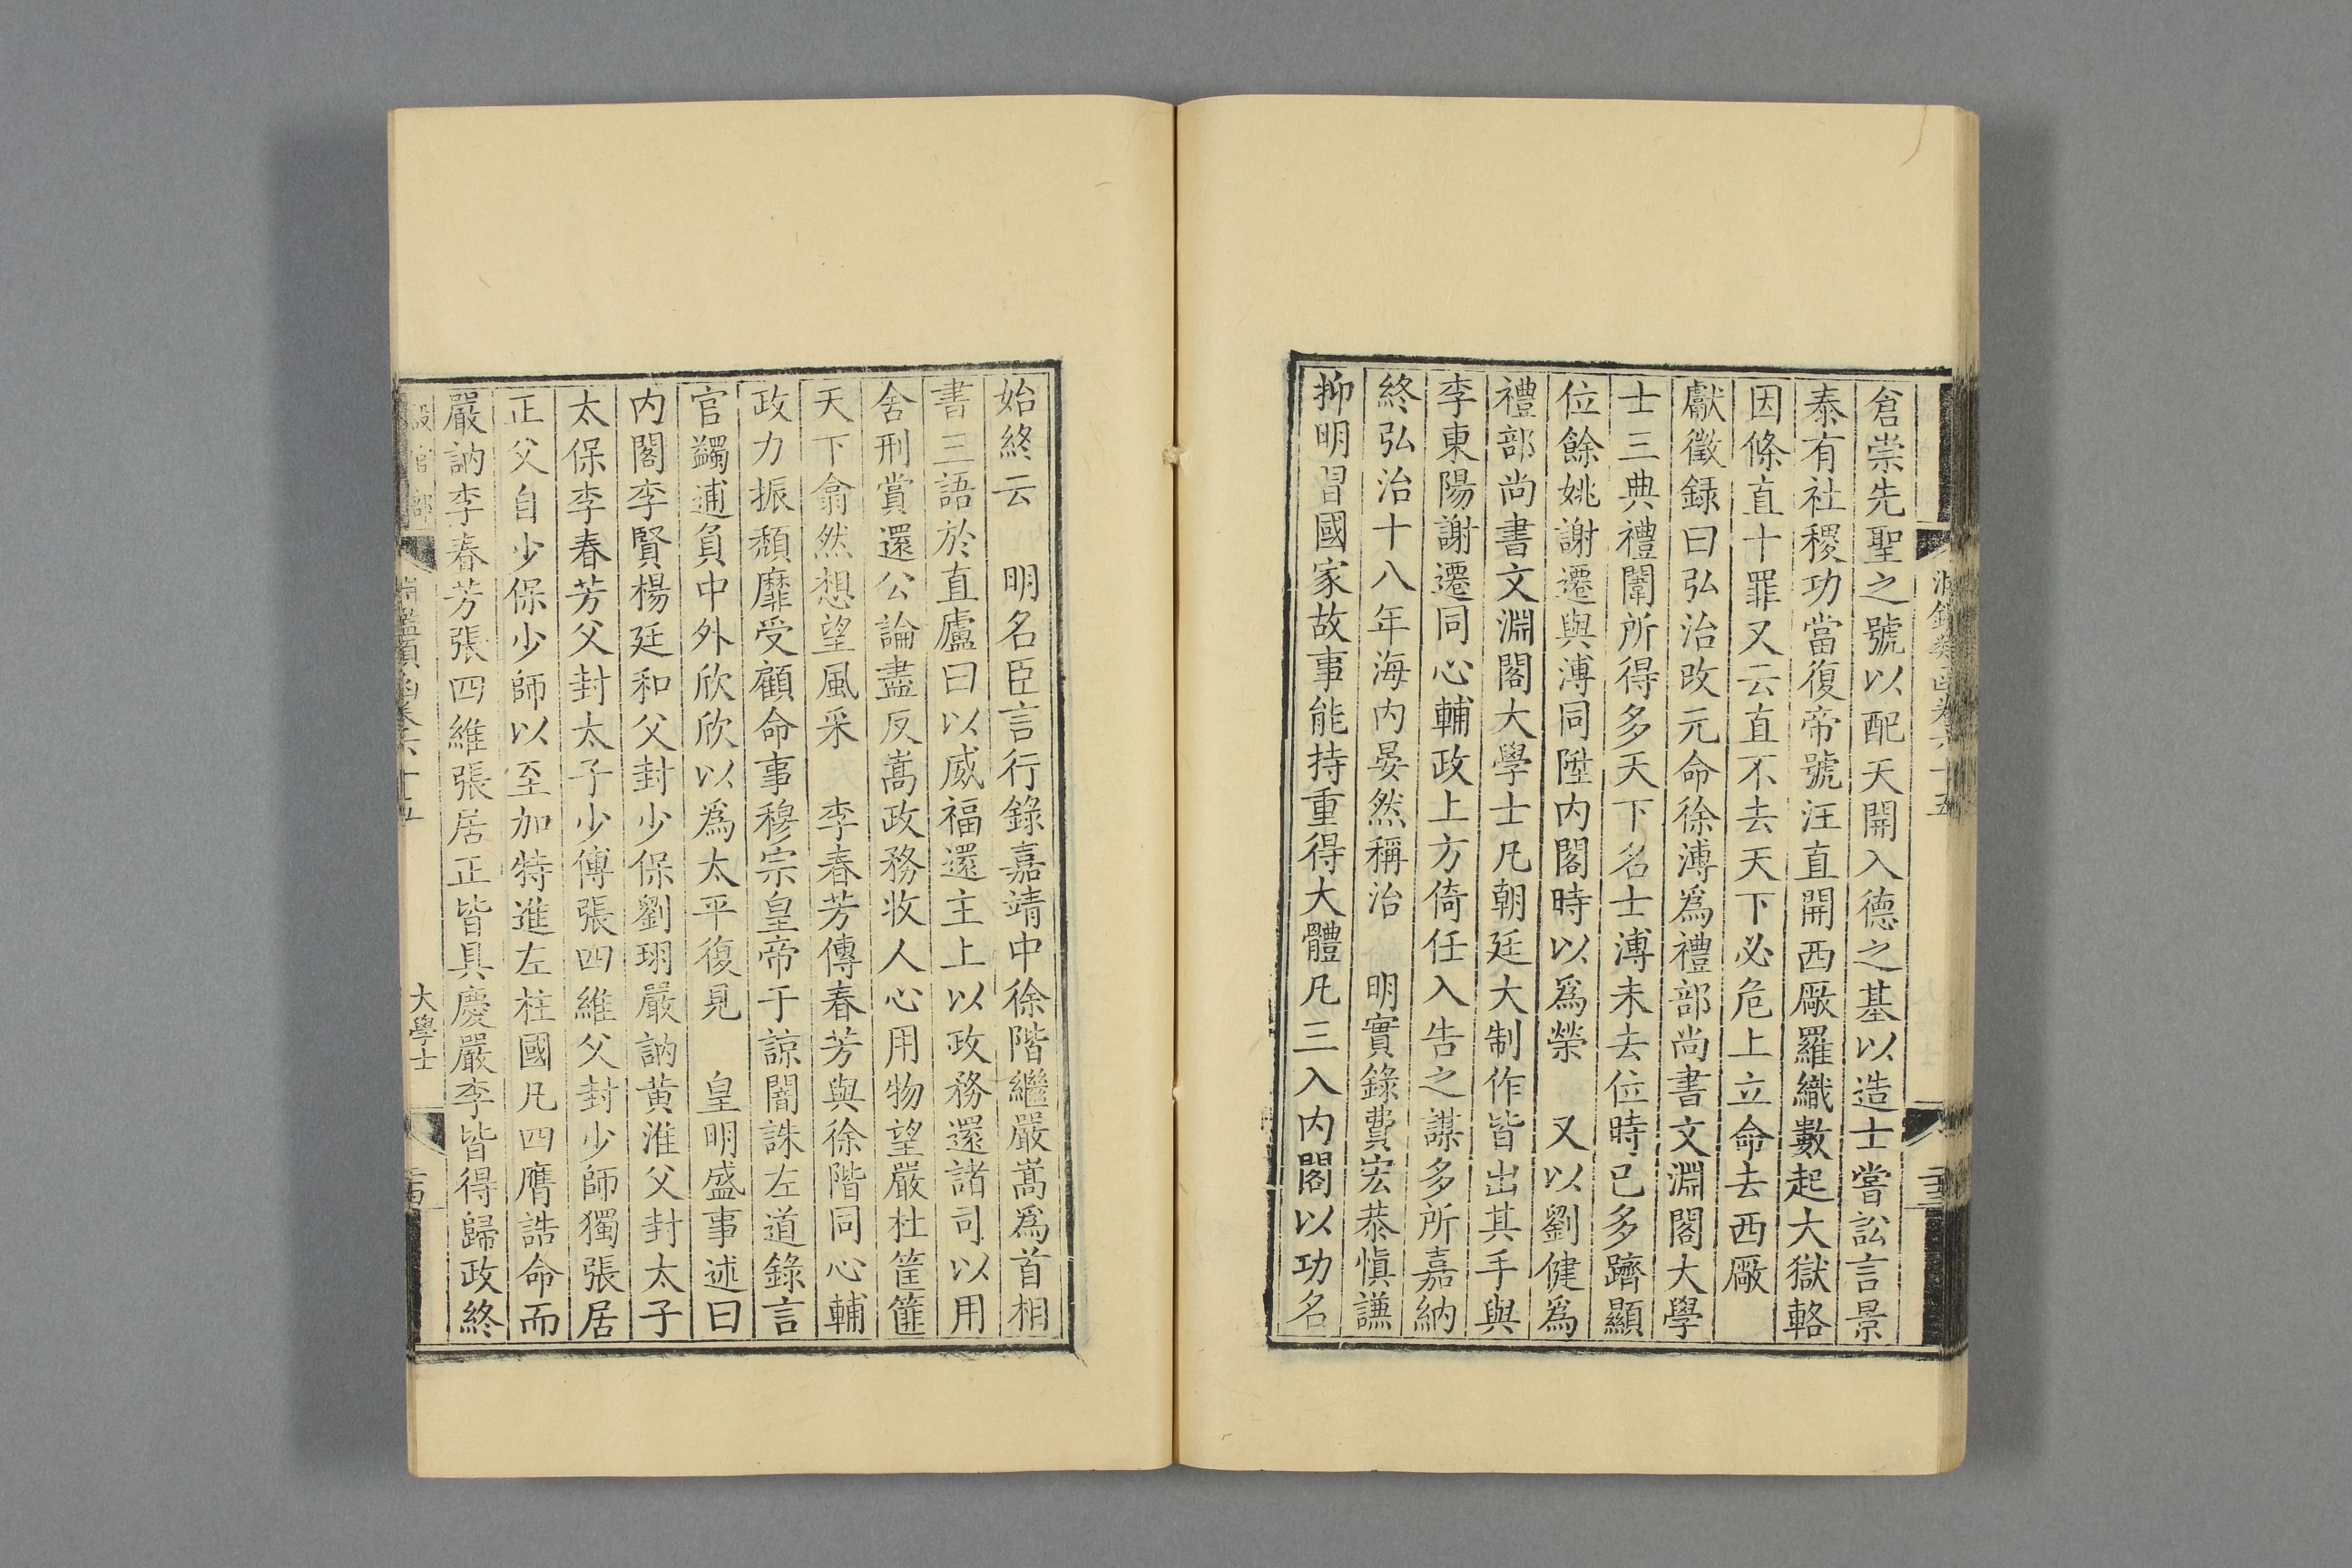 倉崇先聖之號以配天開入德之基以造士嘗訟言景
泰有社稷功當復帝號汪直開西厰羅織數起大獄輅
因條直十罪又云直不去天下必危上立命去西厰
獻徵録曰弘治改元命徐溥爲禮部尚書文淵閣大學
士三典禮闈所得多天下名士溥未去位時已多躋顯
位餘姚謝遷與溥同陞内閣時以爲榮　又以劉健爲
禮部尚書文淵閣大學士凡朝廷大制作皆出其手與
李東陽謝遷同心輔政上方倚任入告之謀多所嘉納
終弘治十八年海内晏然稱治　明實錄費宏恭愼謙
抑明習國家故事能持重得大體凡三入内閣以功名
始終云　明名臣言行錄嘉靖中徐階繼嚴嵩爲首相
書三語於直廬曰以威福還主上以政務還諸司以用
舍刑賞還公論盡反嵩政務收人心用物望嚴杜筐篚
天下翕然想望風采　李春芳傳春芳與徐階同心輔
政力振頽靡受顧命事穆宗皇帝于諒闇誅左道錄言
官蠲逋負中外欣欣以爲太平復見　皇明盛事述曰
内閣李賢楊廷和父封少保劉珝嚴訥黄淮父封太子
太保李春芳父封太子少傅張四維父封少師獨張居
正父自少保少師以至加特進左柱國凡四膺誥命而
嚴訥李春芳張四維張居正皆具慶嚴李皆得歸政終
設官部
淵鑑類函卷六十五
大學士